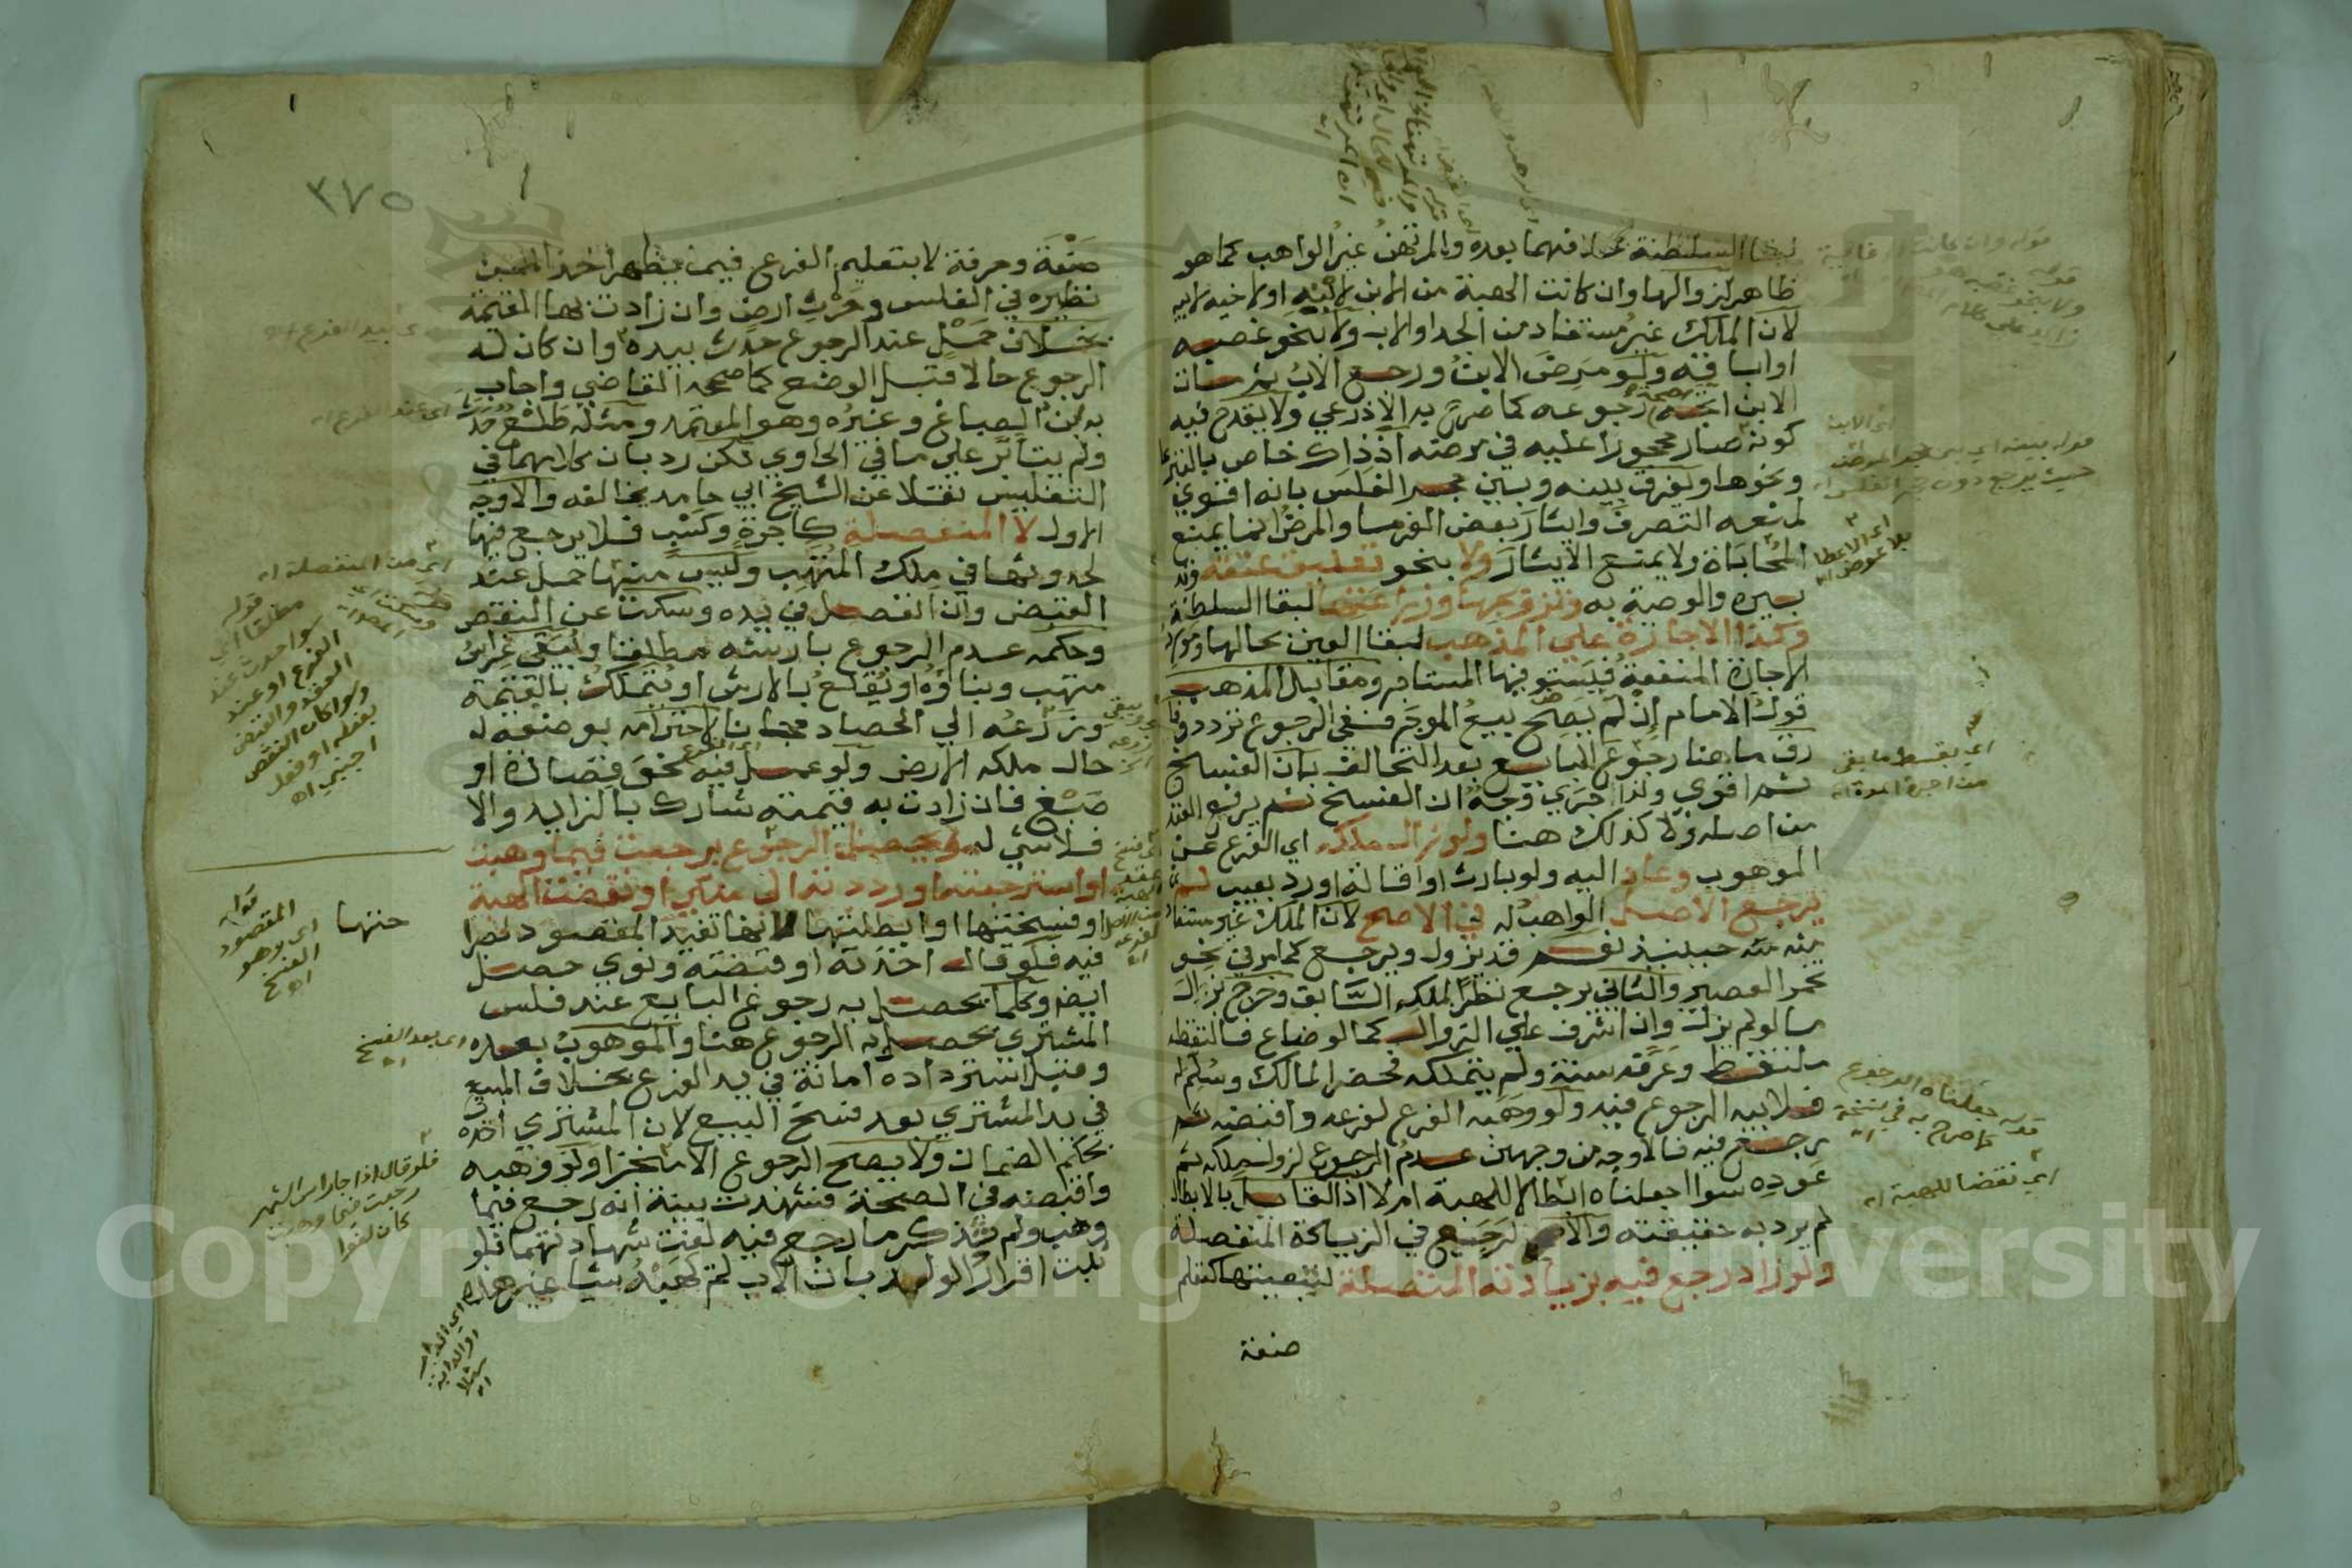 لبقا السلطنة فيهما بعده والمرتهن غير الواهب كما هو
ظاهر لزوالها وان كانت الهبة من الابن لابنه او لاخيه لابيه
لان الملك غير مستفاد من الجد او الاب ولا بنحو غصبه
او اباقه ولو مرض الابن ورجع الاب ثم مات
الابن رجوعه كما صرح به الاذرعي ولا يقدح فيه
كونه صار محجورا عليه في مرضه اذ ذاك خاص بالتبرع
ونحوها ويفرق بينه وبين حجر الفلس بانه اقوي
لمنعه التصرف وايثار بعض الغرما والمرض انما يمنع
المحاباة ولا يمتنع الايثار ولا بنحو تعليق عتقه
بيره والوصية به وتزويجها وزراعتها لبقا السلطنة
وكذا الاجارة علي المذهب لبقا العين بحالها ومورد
الاجارة المنفعة فيستوفيها المستاجر ومقابل المذهب
قول الامام ان لم يصح بيع الموجر ففي الرجوع تردد وفا
رق ما هنا رجوع البايع بعد التحالف بان الفسخ
ثم اقوي ولذا جري وجه ان الفسخ ثم يرفع العقد
من اصله ولا كذلك هنا ولو زال ملكه اي الفرع عن
الموهوب وعاد اليه ولو بارث او اقالة او رد بعيب لم
يرجع الاصل الواهب له في الاصح لان الملك غير مستفا
منه حينيذ نعم قد يزول ويرجع كما مر في نحو
تخمر العصير والثاني يرجع نظرا لملكه السابق وخرج بزال
ما لو لم يزل وان اشرف علي الزوال كما لو ضاع فالتقطه
ملتقط وعرفه سنة ولم يتملكه فحضر المالك وسلم له
فلابيه الرجوع فيه ولو وهبه الفرع لفرعه واقبضه ثم
رجع فيه فالاوجه من وجهين عدم الرجوع لزوال ملكه ثم
عوده سوا اجعلناه ابطالا للهبة ام لا اذ القايل بالابطال
لم يرد به حقيقته والا لرجع في الزيادة المنفصلة
ولو زاد رجع فيه بزيادته المتصلة لتبعيتها كتعلم
صنعة
اي الابن
اي الاعطا
بلا عوض اه
اي بقسط ما بقي
من اجرة المدة اه
قوله جعلناه الرجوع
كما صرح به في نسخة
اي نقضا للهبة اه
٣٧٥
صنعة وحرفة لا بتعليم الفرع فيما يظهر اخذا مما مر
نظيره في الفلس وحرث ارض وان زادت بها القيمة
بخلاف حمل عند الرجوع حدث بيده وان كان له
الرجوع حالا قبل الوضع كما صححه القاضي واجاب
به ابن الصباغ وغيره وهو المعتمد ومثله طلع حدث
ولم يتابر علي ما في الحاوي لكن رد بان كلامهما في
التفليس نقلا عن الشيخ ابي حامد يخالفه والاوجه
الاول لا المنفصلة كاجرة وكسب فلا يرجع فيها
لحدوثها في ملك المتهب وليس منها حمل عند
القبض وان انفصل في يده وسكت عن النقص
وحكمه عدم الرجوع بارشه مطلقا ويبقي غراس
متهب وبناوه او يقلع بالارش او يتملك بالقيمة
وزرعه الي الحصاد مجانا لاحترامه بوضعه له
حال ملكه الارض ولو عمل فيه نحو قصارة او
صبغ فان زادت به قيمته شارك بالزايد والا
فلا شي له ويحصل الرجوع برجعت فيما وهبت
او استرجعته او رددته الي ملكي او نقضت الهبة
او فسختها او ابطلتها لانها تفيد المقصود لصرا
حتها
فيه فلو قال اخذته او قبضته ونوي حصل
ايضا وكلما يحصل به رجوع البايع عند فلس
المشتري يحصل به الرجوع هنا والموهوب بعده
وقبل استرداده امانة في يد الفرع بخلاف المبيع
في يد المشتري بعد فسخ البيع لان المشتري اخذه
بحكم الضمان ولا يصح الرجوع الا منجزا ولو وهبه
واقبضه في الصحة فشهدت بينة انه رجع فيما
وهب ولم تذكر ما رجع فيه لغت شهادتهما فلو
ثبت اقرار الولد بان الاب لم يهبه شيا غير هذه
اي بيد الفرع اه
اي عند الفرع اه
اي من المنفصلة اه
قوله
مطلقا اي
سوا حدث عند
الفرع او عند
العقد والقبض
وسوا كان النقص
بفعله او فعل
اجنبي اه
قوله
المقصود
اي وهو
الفسخ
اه
اي بعد الفسخ
اه
فلو قال اذا جا راس الشهر
رجعت فيما وهبت
كان لغوا
اي الدار
او الدابة
مثلا
اه
Copyright © King Saud University